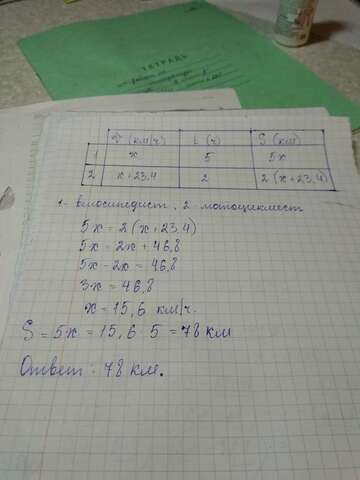 ТЕТРАДЬ
V (км/ч) t (ч) S (км)
1 x 5 5x
2 x+23,4 2 2(x+23,4)
1- велосипедист, 2- мотоциклист
5x = 2(x+23,4)
5x = 2x + 46,8
5x - 2x = 46,8
3x = 46,8
x = 15,6 км/ч.
S = 5x = 15,6 · 5 = 78 км
Ответ: 78 км.